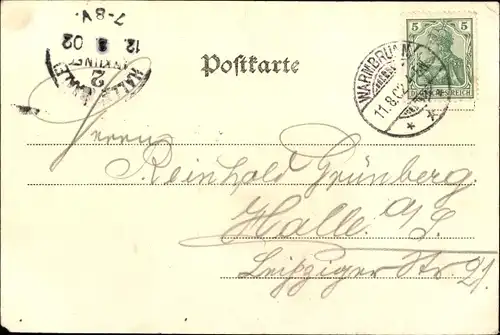 7-8V.
12 8 02
2
HALLE
Postkarte
5 5
DEUTSCHES REICH
WARMBRUNN
11.8.02
* *
Herrn
Reinhold Grünberg.
Halle a/S.
Leipziger Str. 21.